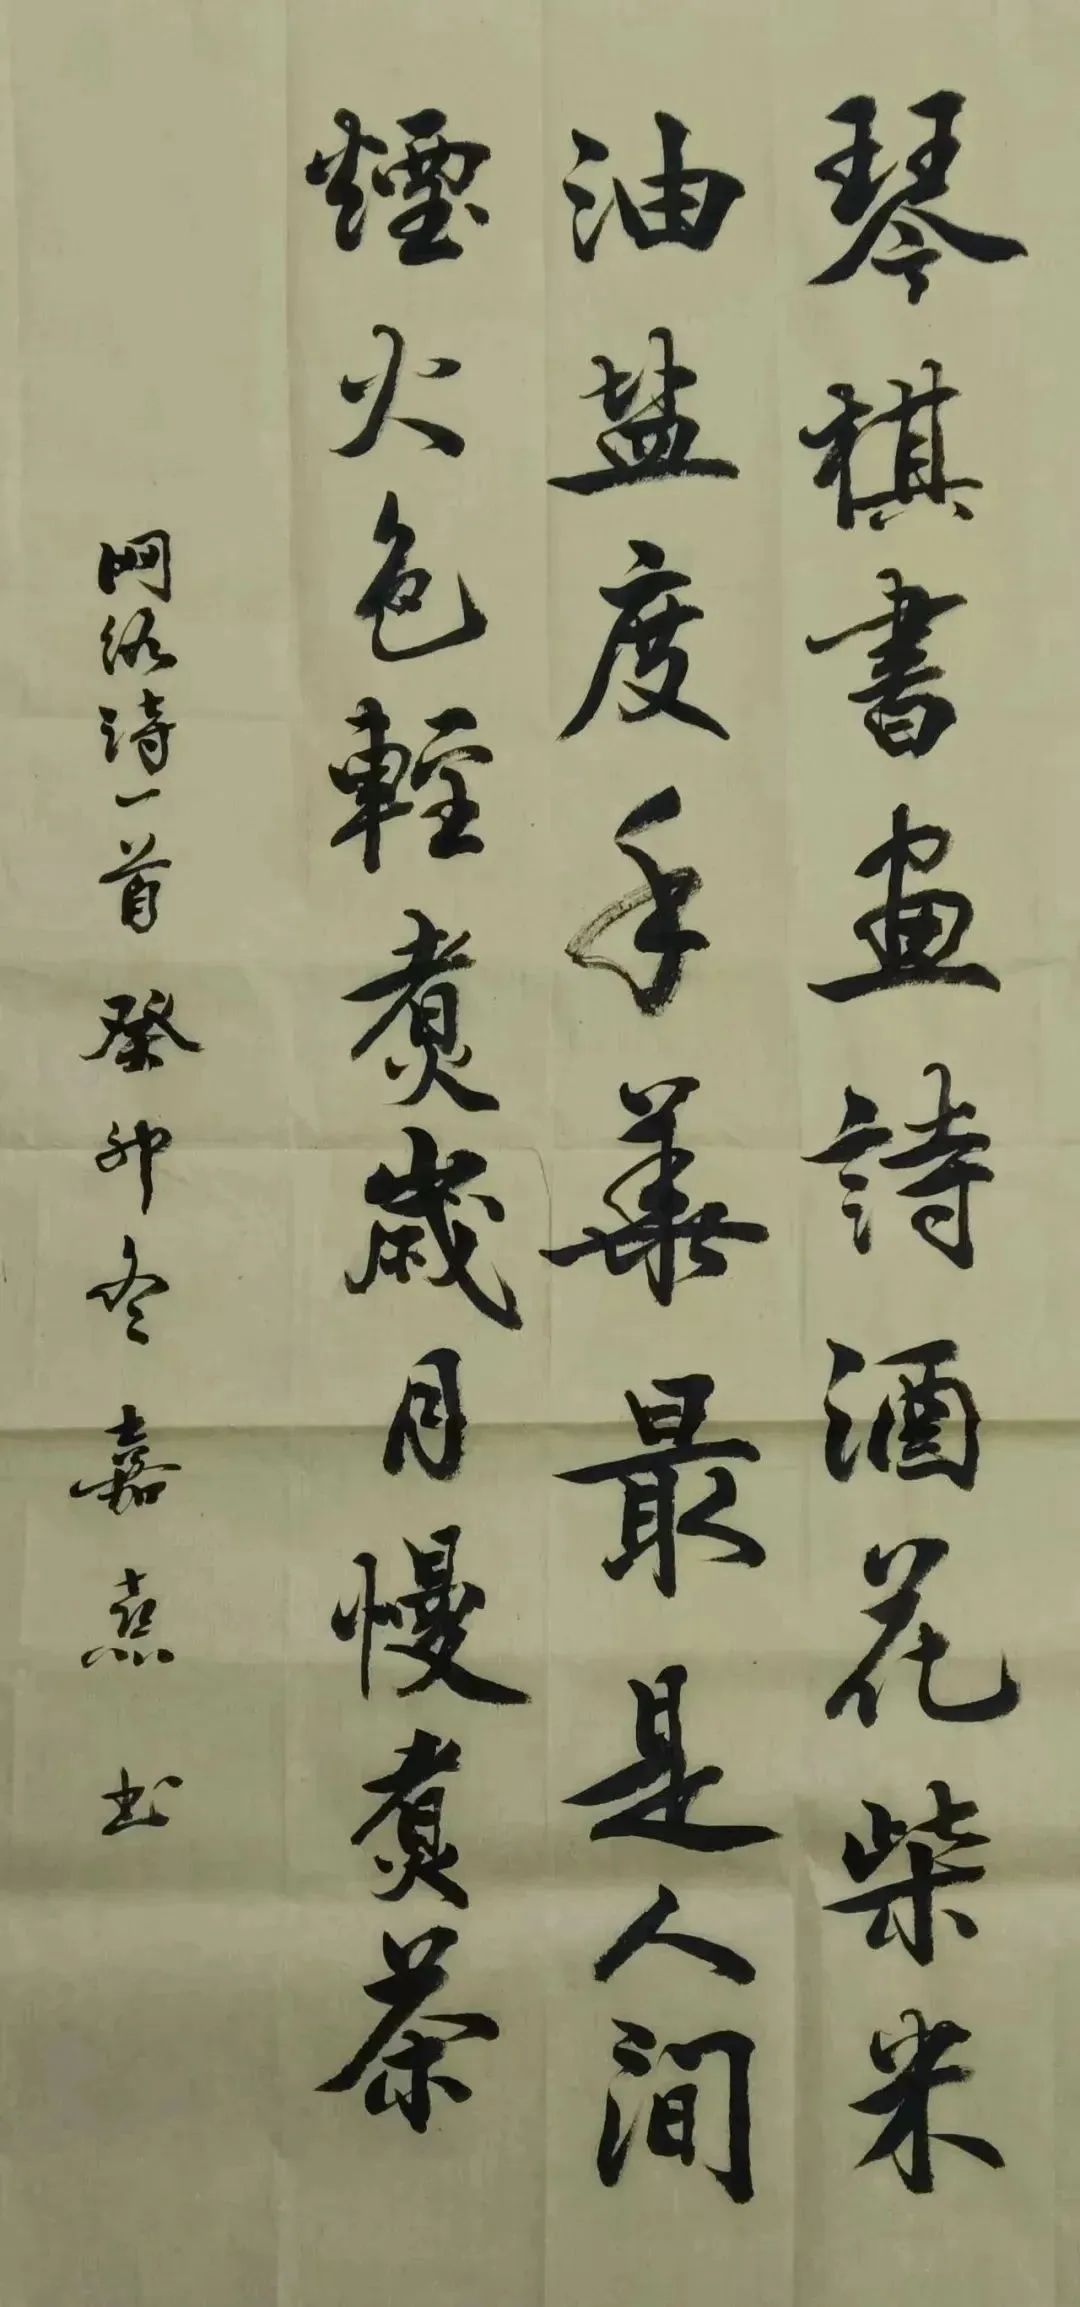 琴棋書畫詩酒花柴米
油盐度年華最是人间
煙火色輕煮歲月慢煮茶
网络詩一首 癸卯冬 嘉熹 书